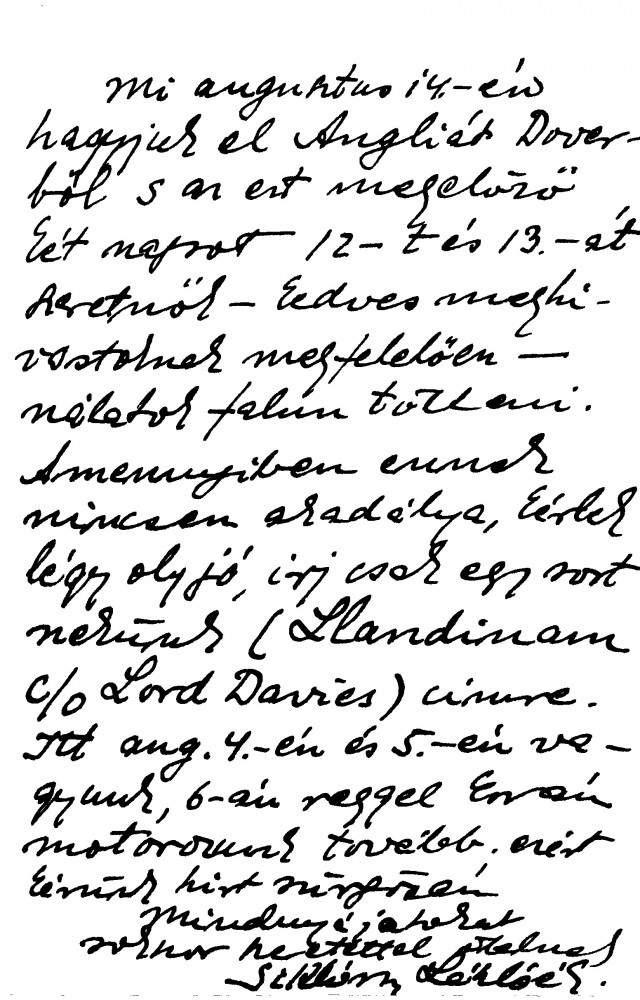 Mi augusztus 14.-én
hagyjuk el Angliát Dover-
ből s az ezt megelőző
két napot 12-t és 13.-át
szeretnők – kedves meghi-
vástoknak megfelelően –
nálatok falun tölteni.
Amennyiben ennek
nincsen akadálya, kérlek
légy oly jó, irj csak egy sort
nekünk (Llandinam
c/o Lord Davies) címre.
Itt aug. 4.-én és 5.-én va-
gyunk, 6-án reggel korán
motorozunk tovább. ezért
kérünk hírt sürgősen
Mindnyájatokat
sokszor szeretettel ölelnek
László